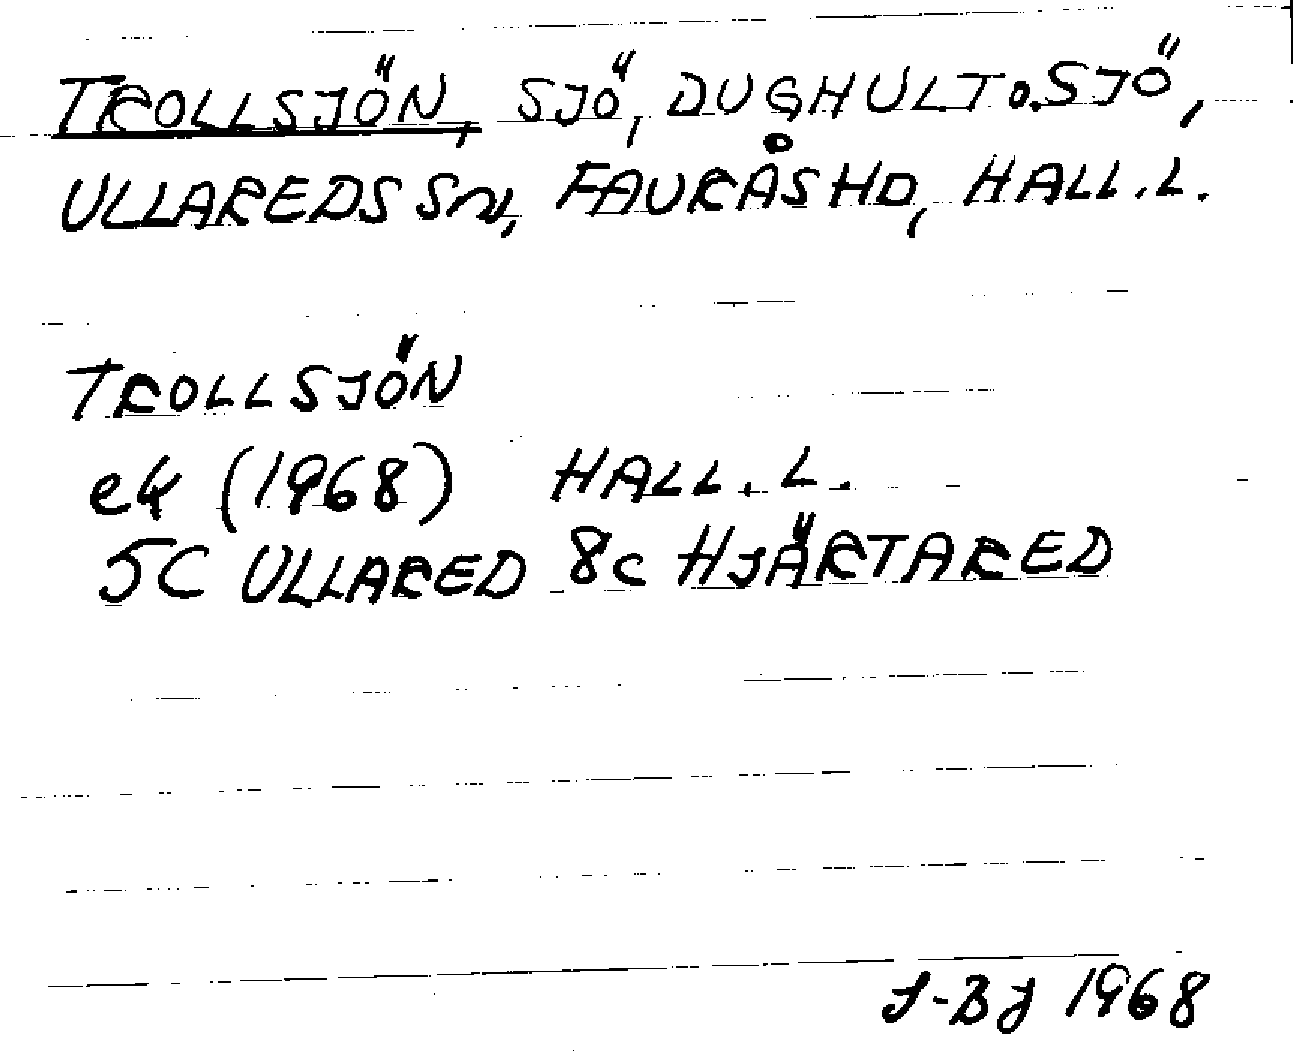 TROLLSJÖN, SJÖ, DUGHULT O. SJÖ,
ULLAREDS SN, FAURÅS HD, HALL. L.
TROLLSJÖN
ek (1968) HALL. L.
5C ULLARED 8c HJÄRTARED
J-BJ 1968